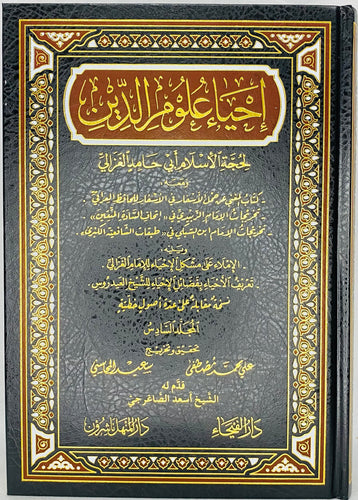 إحياء علوم الدين
لحجة الإسلام أبي حامد الغزالي
ومعه
كتاب المغني عن حمل الأسفار في الأسفار للحافظ العراقي
تخريجات الإمام الزبيدي في «إتحاف السادة المتقين»
تخريجات الإمام ابن السبكي في «طبقات الشافعية الكبرى»
ويليه
الإملاء على مشكل الإحياء للإمام الغزالي
تعريف الأحياء بفضائل الإحياء للشيخ العيدروس
نسخة مقابلة على عدة أصول خطية
المجلد السادس
تحقيق وتخريج
علي محمد مصطفى سعيد المحاسني
قدم له
الشيخ أسعد الصاغرجي
دار الفيحاء دار المنهل ناشرون